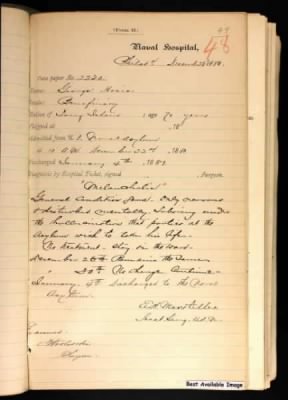 (Form H.) 49
48
Naval Hospital,
Philad^a December 22^d 1880.
Case paper No. 2220
Name: George House
Grade: Beneficiary
Native of Long Island Age 70 years
Shipped at 18
Admitted from U.S. Naval Asylum
at 10 A.M. December 22^d 1880
Discharged January 4^th 1881
Diagnosis by Hospital Ticket, signed , Surgeon.
"Melancholia"
General Condition Good. Only nervous
& disturbed mentally, laboring under
the hallucination that parties at the
Asylum wish to take his life.
No treatment. Stay in the ward.
December 26^th Remains the same
" 30^th No change
January 4^th Discharged to the Naval
Asylum.
Examined
Surgeon
Best Available Image